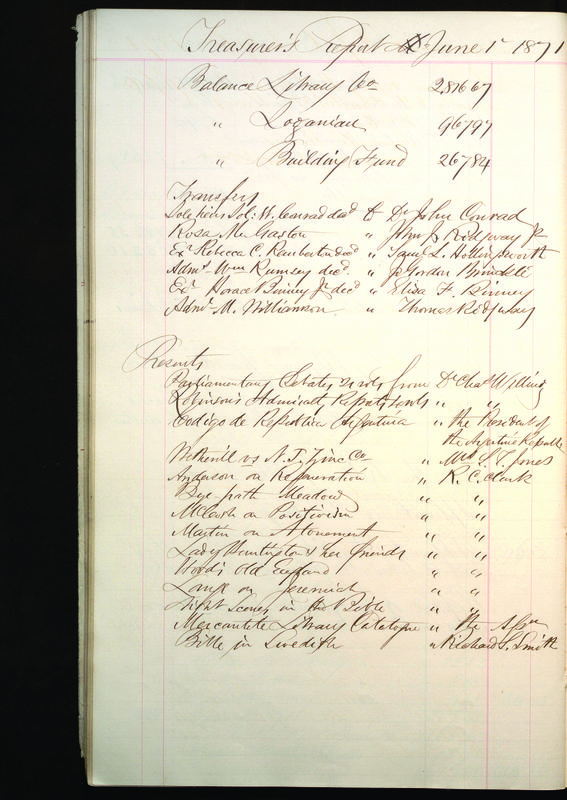 Treasurer's Report June 1st 1871
Balance Library Co 2,816 67
" Loganian 967 97
" Building Fund 267 84
Transfers
Sol: W. Conrad decd to Dr John Conrad
Rosa M. Gaston " John J. Ridgway Jr
Exr Rebecca C. Pemberton decd " Saml L. Hollingsworth
Admr Wm Rumsey decd. " J. Gordon Brinckle
Exr Horace Binney Jr decd " Eliza F. Binney
Admr M. Williamson " Thomas Ridgway
Presents
Parliamentary Debates 21 vols from Dr Chas Willing
Robinson's Admiralty Reports " "
Codigo de Republica Argentina " the President of
the Argentine Republic
Wetherill vs N. J. Zinc Co " Mrs S. T. Jones
Anderson on Regeneration " R. C. Clark
Bye path Meadow " "
McCosh on Positivism " "
Martin on Atonement " "
Lady Huntington & her friends " "
Woods Old England " "
Lange on Jeremiah " "
Night Scenes in the Bible " "
Mercantile Library Catalogue " the Assn
Bible in Swedish " Richard S. Smith